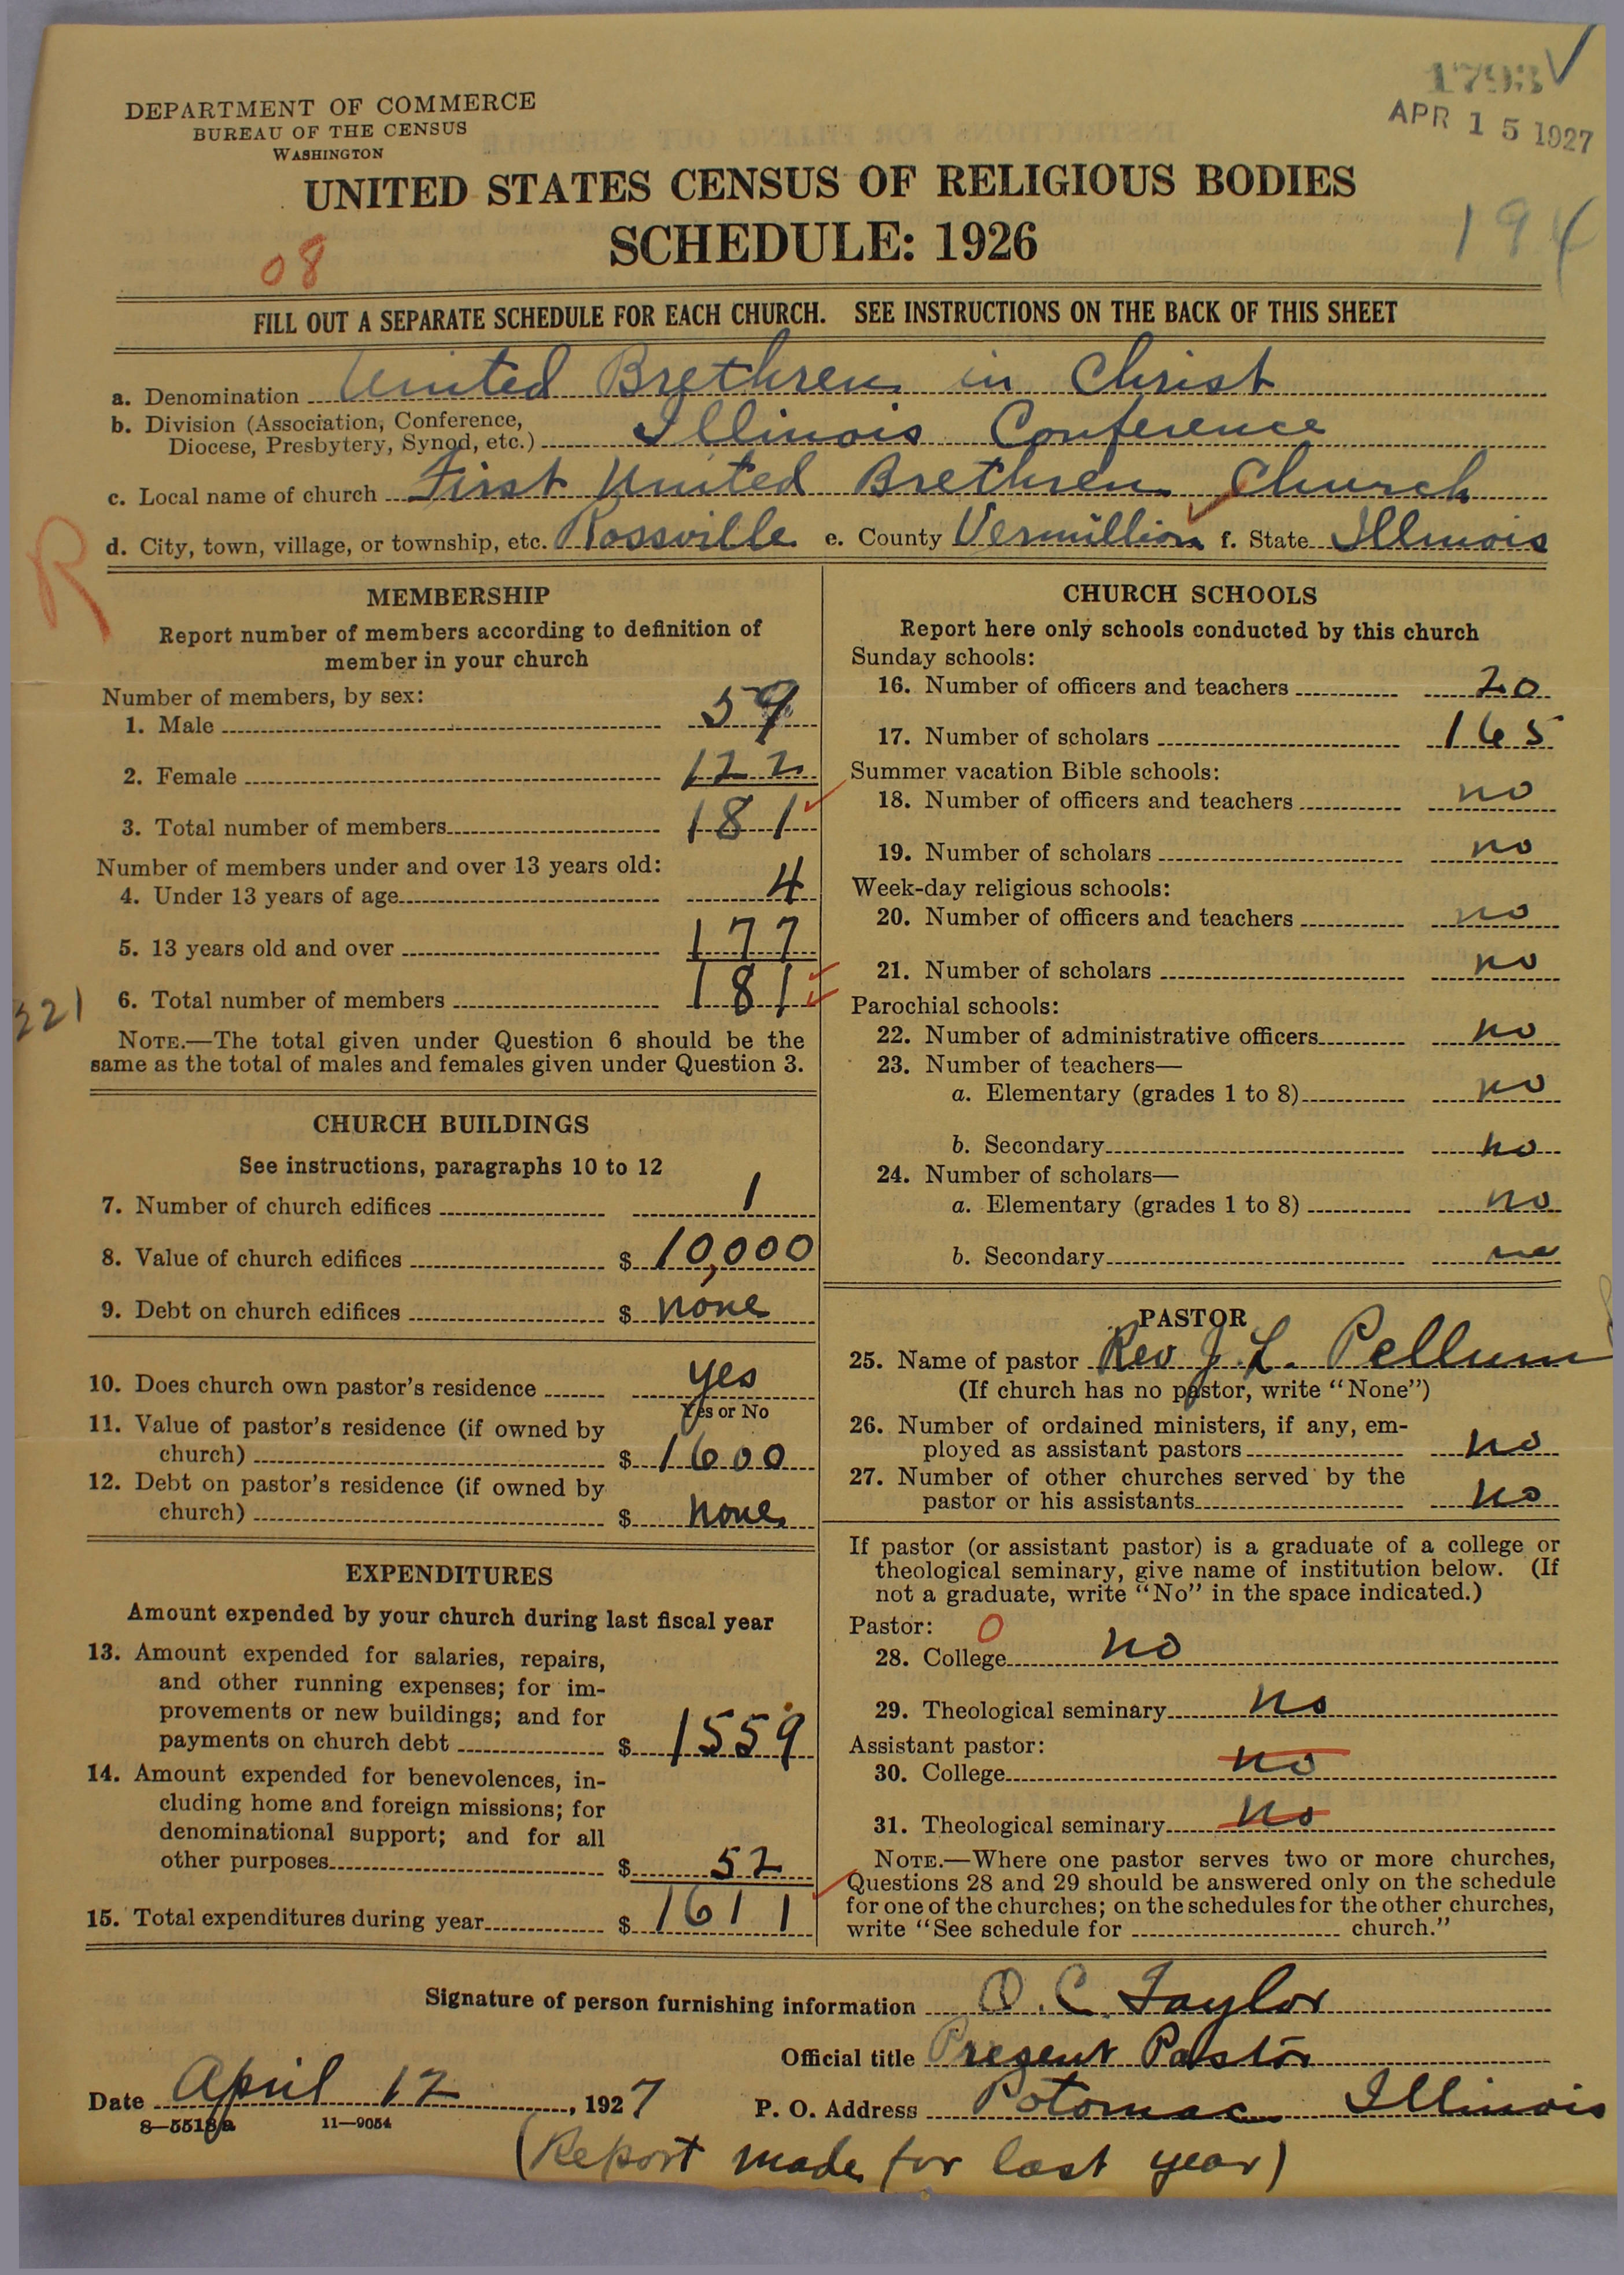 1793
APR 15 1927
DEPARTMENT OF COMMERCE
BUREAU OF THE CENSUS
WASHINGTON
UNITED STATES CENSUS OF RELIGIOUS BODIES
SCHEDULE: 1926
194
08
FILL OUT A SEPARATE SCHEDULE FOR EACH CHURCH. SEE INSTRUCTIONS ON THE BACK OF THIS SHEET
a. Denomination United Brethren in Christ
b. Division (Association, Conference,
Diocese, Presbytery, Synod, etc.) Illinois Conference
c. Local name of church First United Brethren Church
d. City, town, village, or township, etc. Rossville e. County Vermillion f. State Illinois
R
MEMBERSHIP
Report number of members according to definition of
member in your church
Number of members, by sex:
1. Male 59
2. Female 122
3. Total number of members 181
Number of members under and over 13 years old:
4. Under 13 years of age 4
5. 13 years old and over 177
6. Total number of members 181
221
NOTE.—The total given under Question 6 should be the
same as the total of males and females given under Question 3.
CHURCH BUILDINGS
See instructions, paragraphs 10 to 12
7. Number of church edifices 1
8. Value of church edifices $ 10,000
9. Debt on church edifices $ none
10. Does church own pastor's residence yes
Yes or No
11. Value of pastor's residence (if owned by
church) $ 1600
12. Debt on pastor's residence (if owned by
church) $ none
EXPENDITURES
Amount expended by your church during last fiscal year
13. Amount expended for salaries, repairs,
and other running expenses; for im-
provements or new buildings; and for
payments on church debt $ 1559
14. Amount expended for benevolences, in-
cluding home and foreign missions; for
denominational support; and for all
other purposes $ 52
15. Total expenditures during year $ 1611
CHURCH SCHOOLS
Report here only schools conducted by this church
Sunday schools:
16. Number of officers and teachers 20
17. Number of scholars 165
Summer vacation Bible schools:
18. Number of officers and teachers no
19. Number of scholars no
Week-day religious schools:
20. Number of officers and teachers no
21. Number of scholars no
Parochial schools:
22. Number of administrative officers no
23. Number of teachers—
a. Elementary (grades 1 to 8) no
b. Secondary no
24. Number of scholars—
a. Elementary (grades 1 to 8) no
b. Secondary no
PASTOR
25. Name of pastor Rev J. L. Pellum
(If church has no pastor, write "None")
26. Number of ordained ministers, if any, em-
ployed as assistant pastors no
27. Number of other churches served by the
pastor or his assistants no
If pastor (or assistant pastor) is a graduate of a college or
theological seminary, give name of institution below. (If
not a graduate, write "No" in the space indicated.)
Pastor: 0
28. College no
29. Theological seminary no
Assistant pastor:
30. College no
31. Theological seminary no
NOTE.—Where one pastor serves two or more churches,
Questions 28 and 29 should be answered only on the schedule
for one of the churches; on the schedules for the other churches,
write "See schedule for church."
Signature of person furnishing information O. C. Taylor
Official title Present Pastor
Date April 12, 1927 P. O. Address Potomac Illinois
8—5518a 11—9054
(Report made for last year)